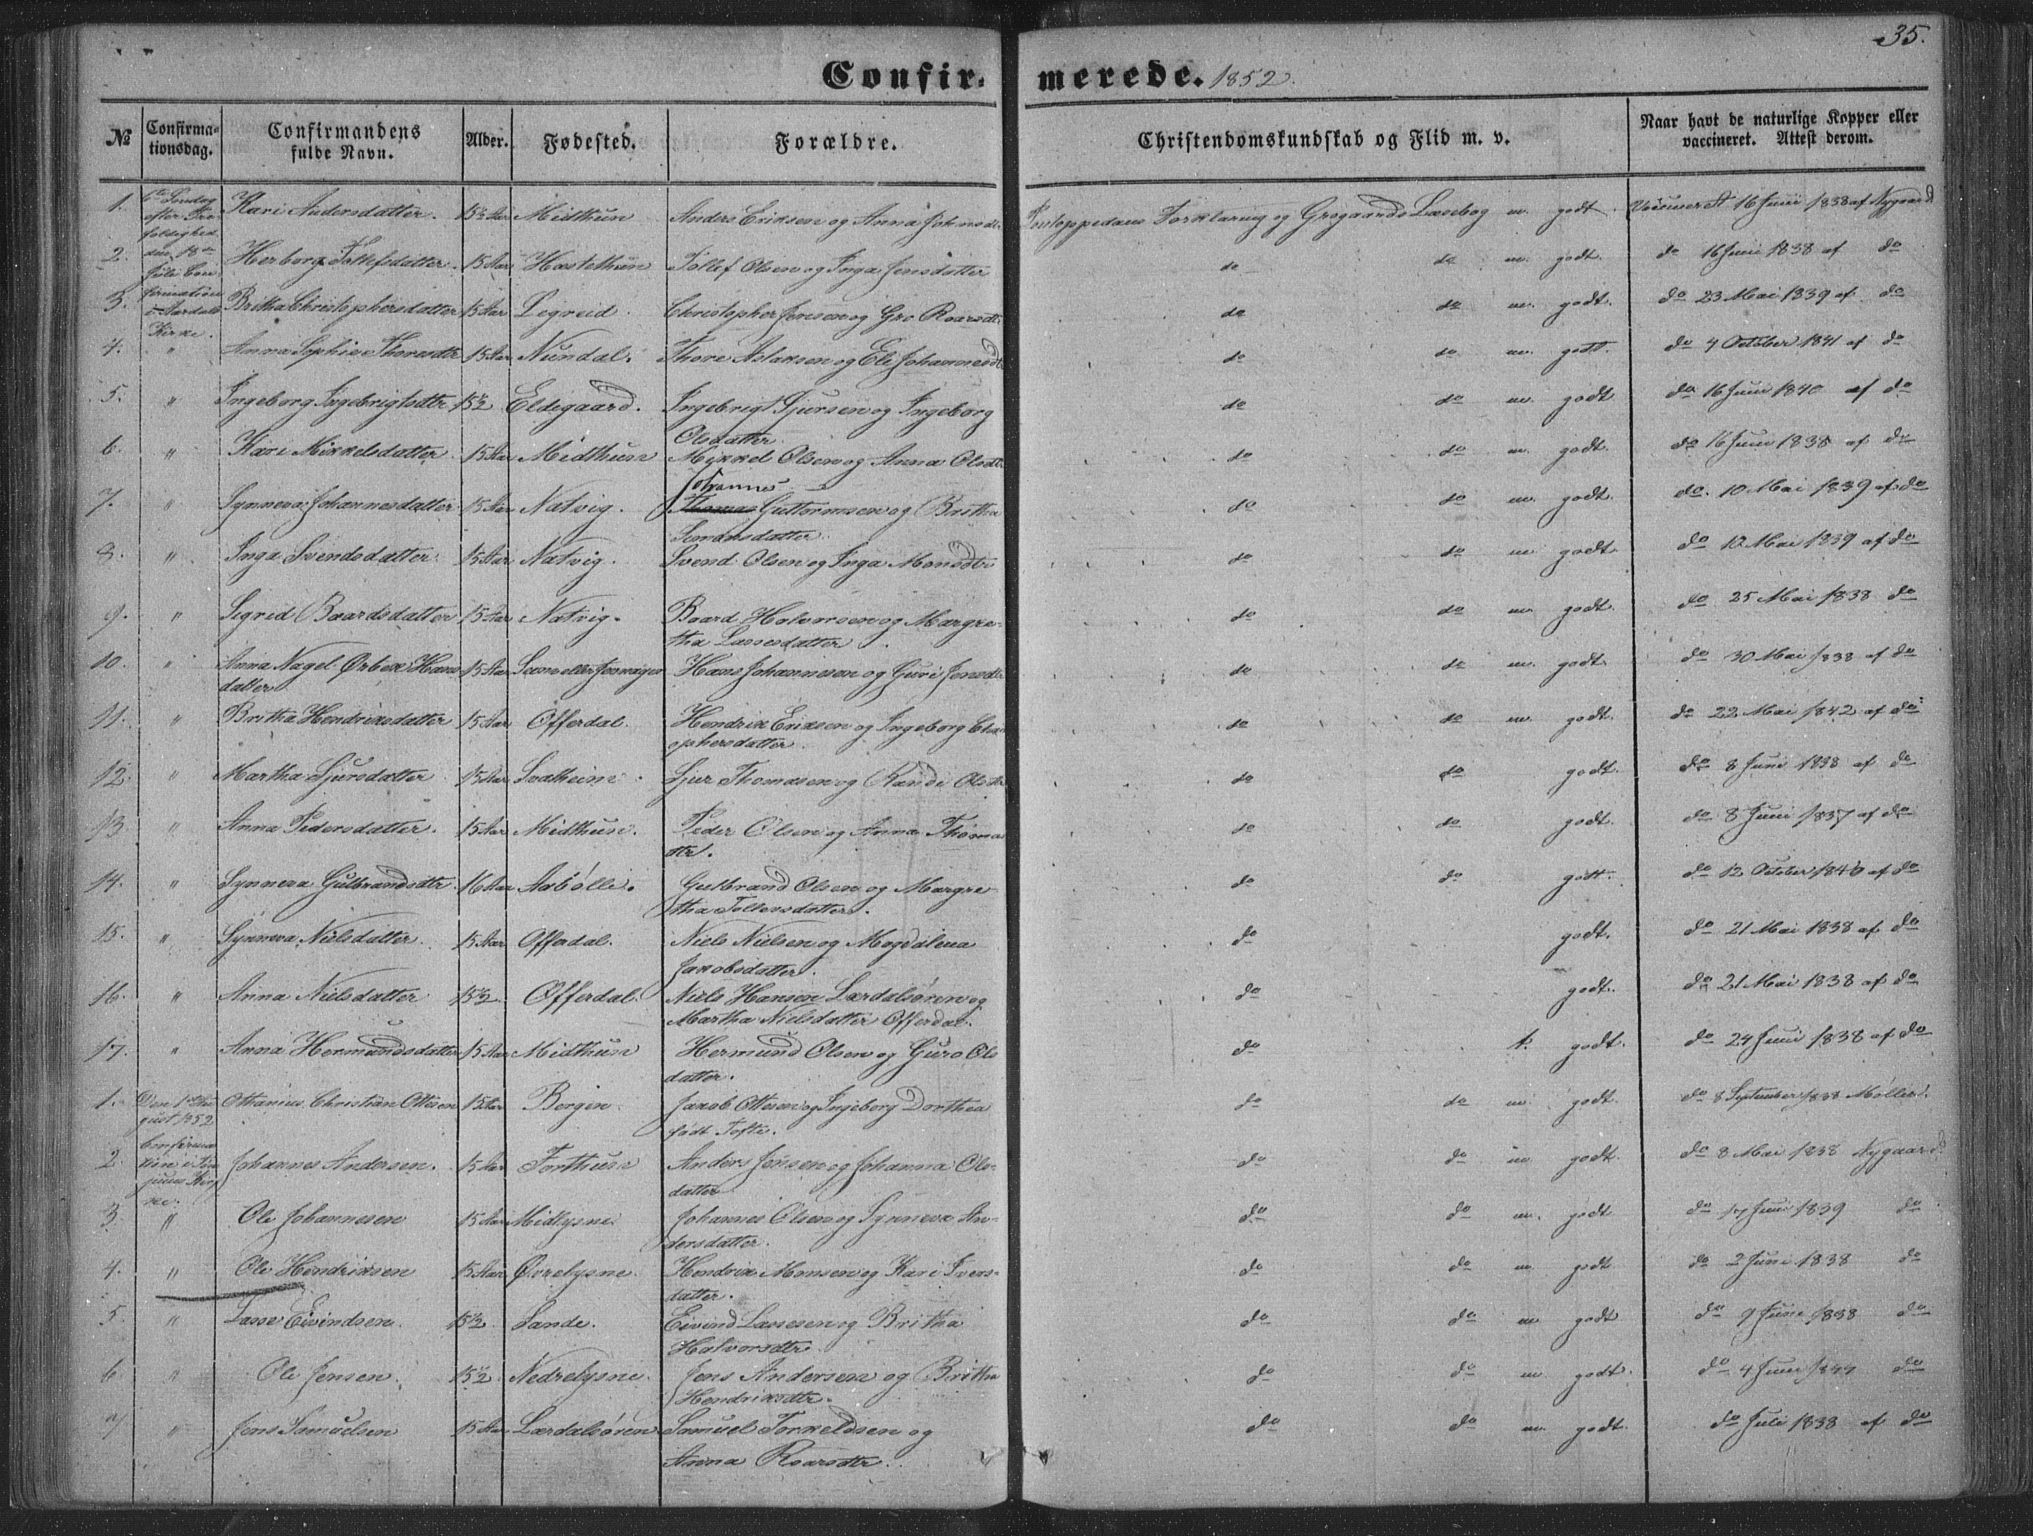 35.
Confirmerede. 1852.
№ Confirmationsdag. Confirmandens fulde Navn. Alder. Fødested. Forældre. Christendomskundskab og Flid m. v. Naar havt de naturlige Kopper eller vaccineret. Attest derom.
1. 6te Søndag efter Trefoldighed den 18de Juli Confirmation i Aardals Kirke. Kari Andersdatter. 15½ Aar Midthun Anders Eriksen og Anna Johnsdtr Pontoppedans Forklaring og Grogaards Læsebog m. godt. Vaccineret 16 Juni 1838 af Nygaard
2. Herborg Tollefsdatter. 15 Aar Hæstethun Tollef Olsen og Inga Jensdatter do do m. godt. do 16 Juni 1838 af do
3. Britha Christophersdatter 15 Aar Legreid. Christopher Jensen og Gro Roarsdtr do do m. godt. do 23 Mai 1839 af do
4. " Anna Sophie Thoresdtr 15 Aar Nundal. Thore Aslaksen og Eli Johannesdtr do do m. godt. do 4 October 1841 af do
5. " Ingeborg Ingebrigtsdtr 15½ Eldegaard. Ingebrigt Sjursen og Ingeborg
Olsdatter. do do m. godt. do 16 Juni 1840 af do
6. " Kari Mikkelsdatter. 15 Aar Midthun Mikkel Olsen og Anna Olsdtr do do m. godt. do 16 Juni 1838 af do
Johannes
7. " Synneva Johannesdatter 15 Aar Natvig. Thomas Guttormsen og Britha do do m. godt. do. 10 Mai 1839 af do
8. " Inga Svendsdatter 15 Aar Natvig. Svend Olsen og Inga Monsdtr do do m. godt. do 10 Mai 1839 af do
9. " Sigrid Baardsdatter 15 Aar Natvig. Baard Halvorsen og Margre-
tha Lassesdatter. do do m. godt. do 25 Mai 1838 do
10. " Anna Nagel Ørbek Hans 15 Aar Hans Johannesen og Guri Jensdtr
datter do do m. godt. do 30 Mai 1838 af do
11. " Britha Hendriksdatter 15 Aar Offerdal. Hendrik Eriksen og Ingeborg Chri
ophersdatter. do do m. godt. do 22 Mai 1842 af do
12. " Martha Sjursdatter 15 Aar Svalheim. Sjur Thomasen og Randi Olsdtr do do godt. do 8 Juni 1838 af do
13. " Anna Pedersdatter. 15 Aar Midthun. Peder Olsen og Anna Thomas
dtr. do do godt. do 8 Juni 1837 af do
14. " Synneva Gulbrandsdtr 16 Aar Aabølle. Gulbrand Olsen og Margre
tha Tollevsdatter. do do godt. do 12 October 1840 af do
15. " Synneva Nielsdatter. 15 Aar Offerdal. Niels Nielsen og Magdalena
Jakobsdatter. do godt. do 21 Mai 1838 af do
16. " Anna Nielsdatter 15½ Offerdal. Niels Hansen Lærdalsøren og
Martha Nielsdatter Offerdal. do godt. do 21 Mai 1838 af do
17. " Anna Hermundsdatter 15 Aar Midthun Hermund Olsen og Guro Ols
datter. do t. godt. do 24 Juni 1838 af do
1. Den 1ste August 1852 Confirmation i Kirke. Ottarius Christian Ottesen 15 Aar Bergen. Jakob Ottesen og Ingeborg Dorthea
født Tofte. do do m godt. do 8 September 1838 Møller.
2. Johannes Andersen. 15 Aar Forthun Anders Jensen og Johanna Ols-
datter do do m godt. do 8 Mai 1838 Nygaard
3. " Ole Johannesen 15 Aar Midlysne. Johannes Olsen og Synneva An-
dersdatter. do do m. godt do 17 Juni 1839 do
4. " Ole Hendriksen 15 Aar Øvrelysne. Hendrik Monsen og Kari Ivers-
datter. do do m. godt do 2 Juni 1838 do
5. " Lasse Eivindsen. 15½ Sande. Eivind Lassesen og Britha
Halvorsdtr. do do m godt. do 9 Juni 1838 do
6 " Ole Jensen. 15½ Nedrelysne. Jens Andersen og Britha
Hendriksdtr. do do m godt. do 4 Juni do
7 " Jens Samuelsen 15 Aar Lærdalsøren Samuel Torkeldsen og
Anna Roarsdtr. do do m. godt. do Juli 1838 af do